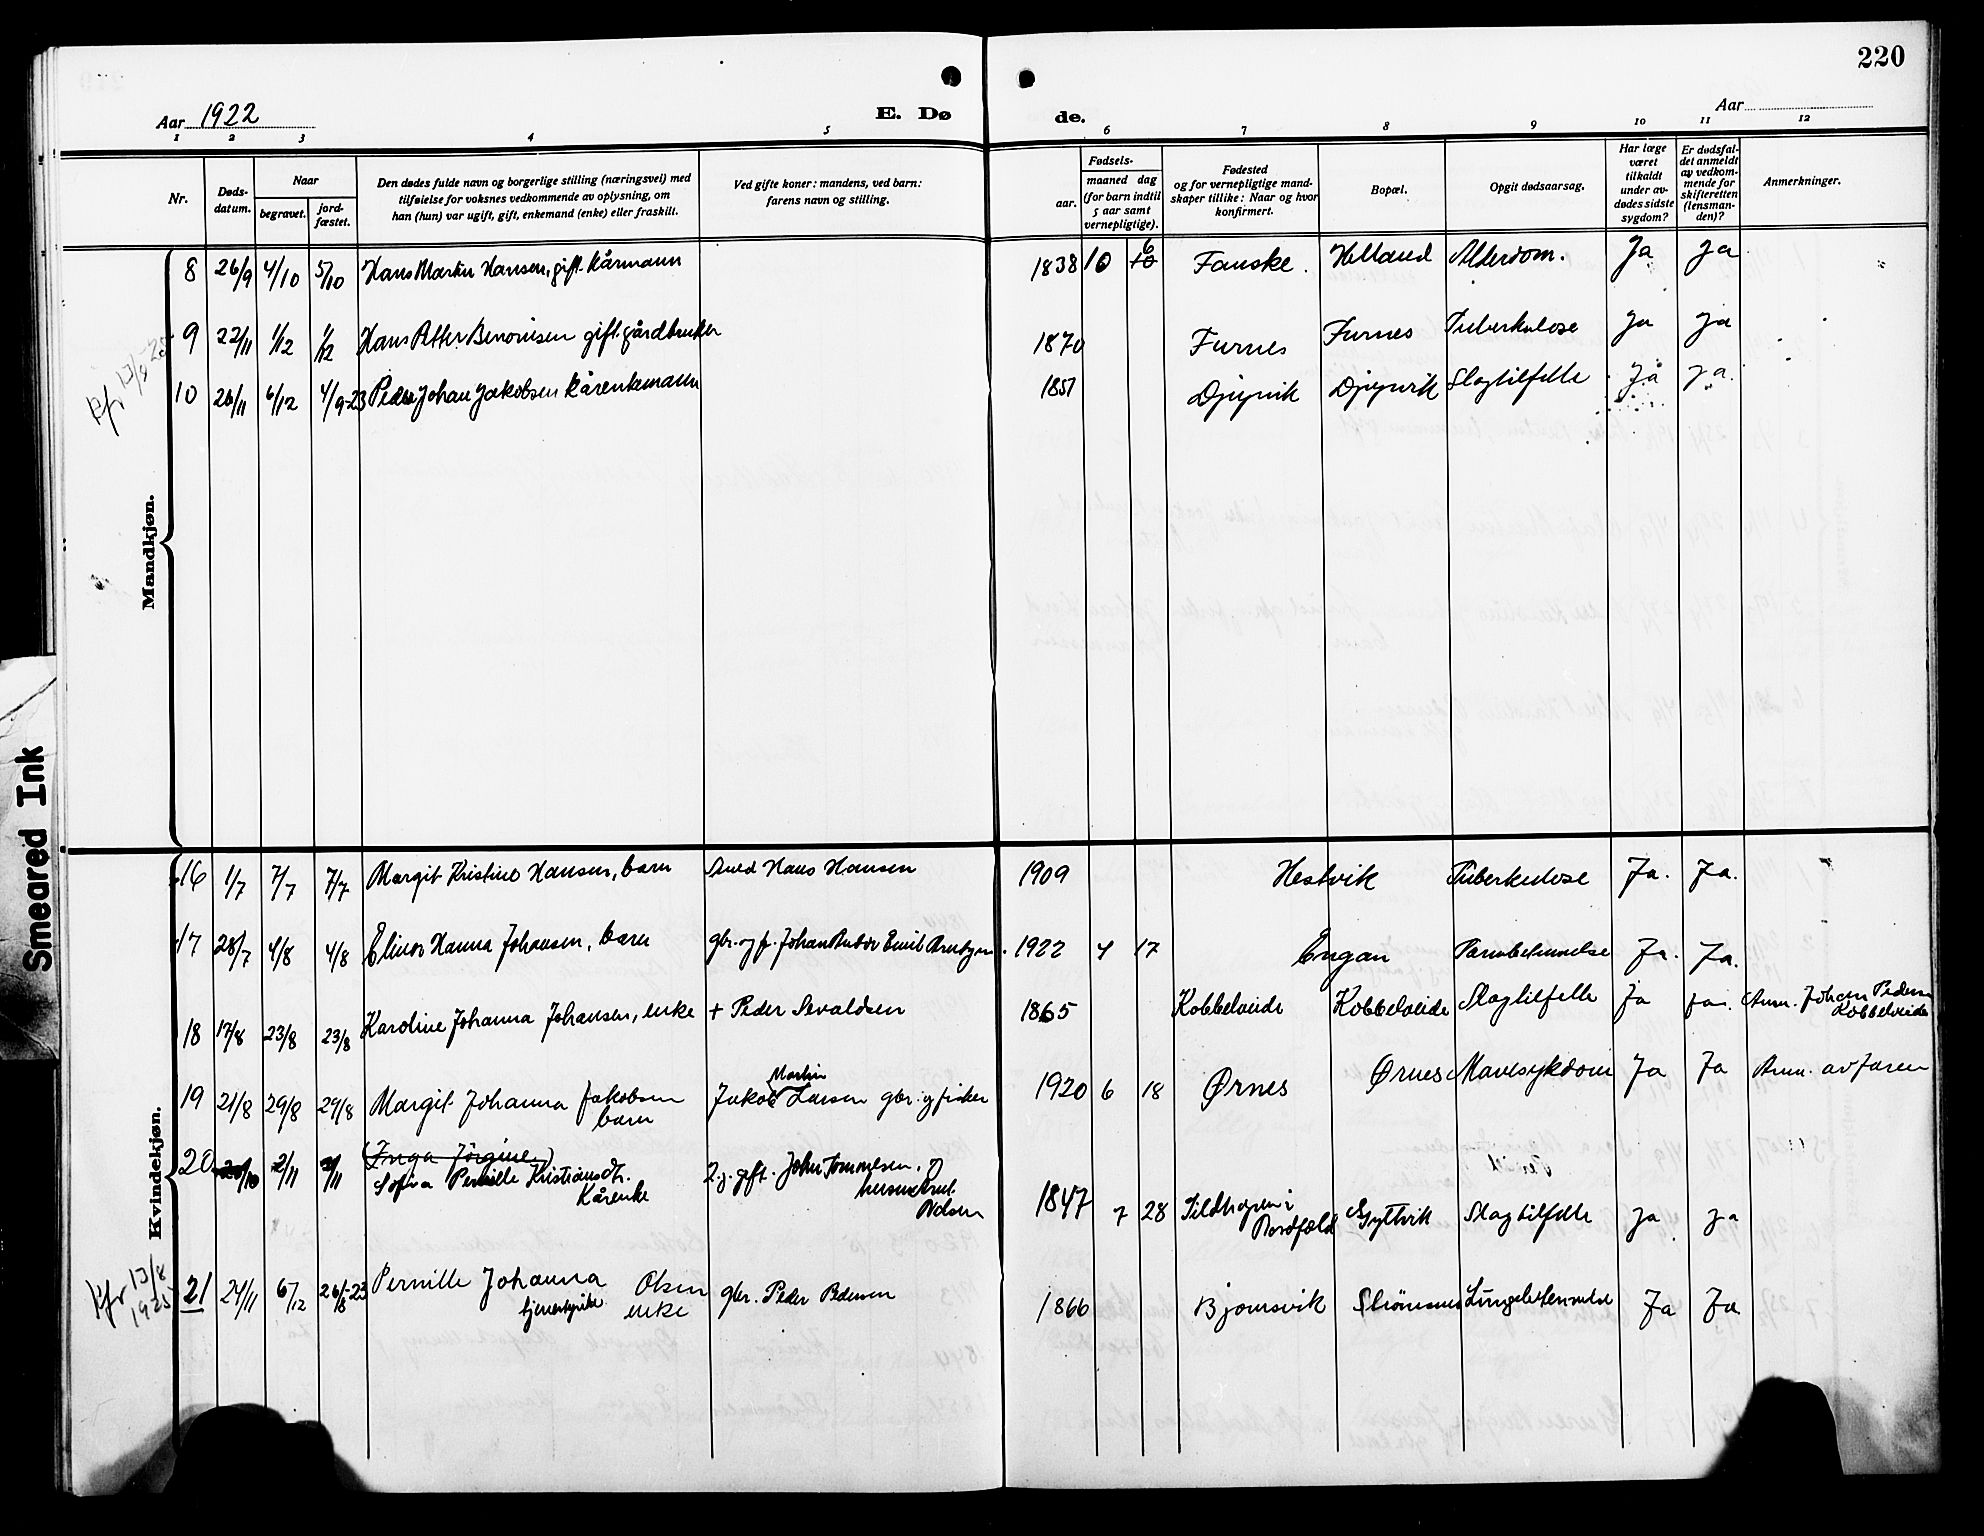 220
Aar 1922
E. Dø
de.
Aar
1 2 3 4 5 6 7 8 9 10 11 12
Nr.
Døds-
datum.
Naar
begravet.
jord-
fæstet.
Den dødes fulde navn og borgerlige stilling (næringsvei) med
tilføielse for voksnes vedkommende av oplysning, om
han (hun) var ugift, gift, enkemand (enke) eller fraskilt.
Ved gifte koner: mandens, ved barn:
farens navn og stilling.
Fødsels-
aar.
maaned dag
(for barn indtil
5 aar samt
vernepligtige).
Fødested
og for vernepligtige mand-
skaper tillike: Naar og hvor
konfirmert.
Bopæl.
Opgit dødsaarsag.
Har læge
været
tilkaldt
under av-
dødes sidste
sygdom?
Er dødsfal-
det anmeldt
av vedkom-
mende for
skifteretten
(lensman-
den)?
Anmerkninger.
Mandkjøn.
8 26/9 4/10 5/10 Hans Martin Hansen, gift kårmann 1838 10 6 Fauske. Helland Alderdom. Ja Ja
9 22/11 1/12 1/12 Hans Petter Benonisen gift gårdbruker 1870 Furnes Furnes Tuberkulose Ja Ja
10 26/11 6/12 4/9-23 Peder Johan Jakobsen kårenkemann 1851 Djupvik Djupvik Slagtilfelle Ja Ja.
Kvindekjøn.
16 1/7 7/7 7/7 Margit Kristine Hansen, barn Hans Hansen 1909 Hestvik Tuberkulose Ja. Ja.
17 28/7 4/8 4/8 Elinor Hanna Johansen, barn gbr. og f. Johan Emil 1922 4 17 Engan Ja. Ja.
18 17/8 23/8 23/8 Karoline Johanna Johansen, enke + Peder Sevaldsen 1865 Kobbelveide Kobbelveide Slagtilfelle Ja Ja. Anm. Johan Pedersen
Kobbelveide
19 21/8 29/8 29/8 Margit Johanna Jakobsen
barn
Jakob Martin Larsen gbr. og fisker 1920 6 18 Ørnes Ørnes Mavesykdom Ja Ja Anm. av faren
20 /10 2/11 2/11 (Inga Jørgine)
Sofva Pernille Kristiansdtr.
Kårenke
2. g. gift. John Tommesen,
Sildhopen i
Nordfold
1847 7 28 Gyltvik Slagtilfelle Ja Ja
kfr 13/8
1925
21 24/11 6/12 26/8-23 Pernille Johanna Olsen
tjenestpike enke
gbr. Peder Pedersen 1866 Bjørnsvik Strømsnes Lungebetennelse Ja Ja
Smeared Ink